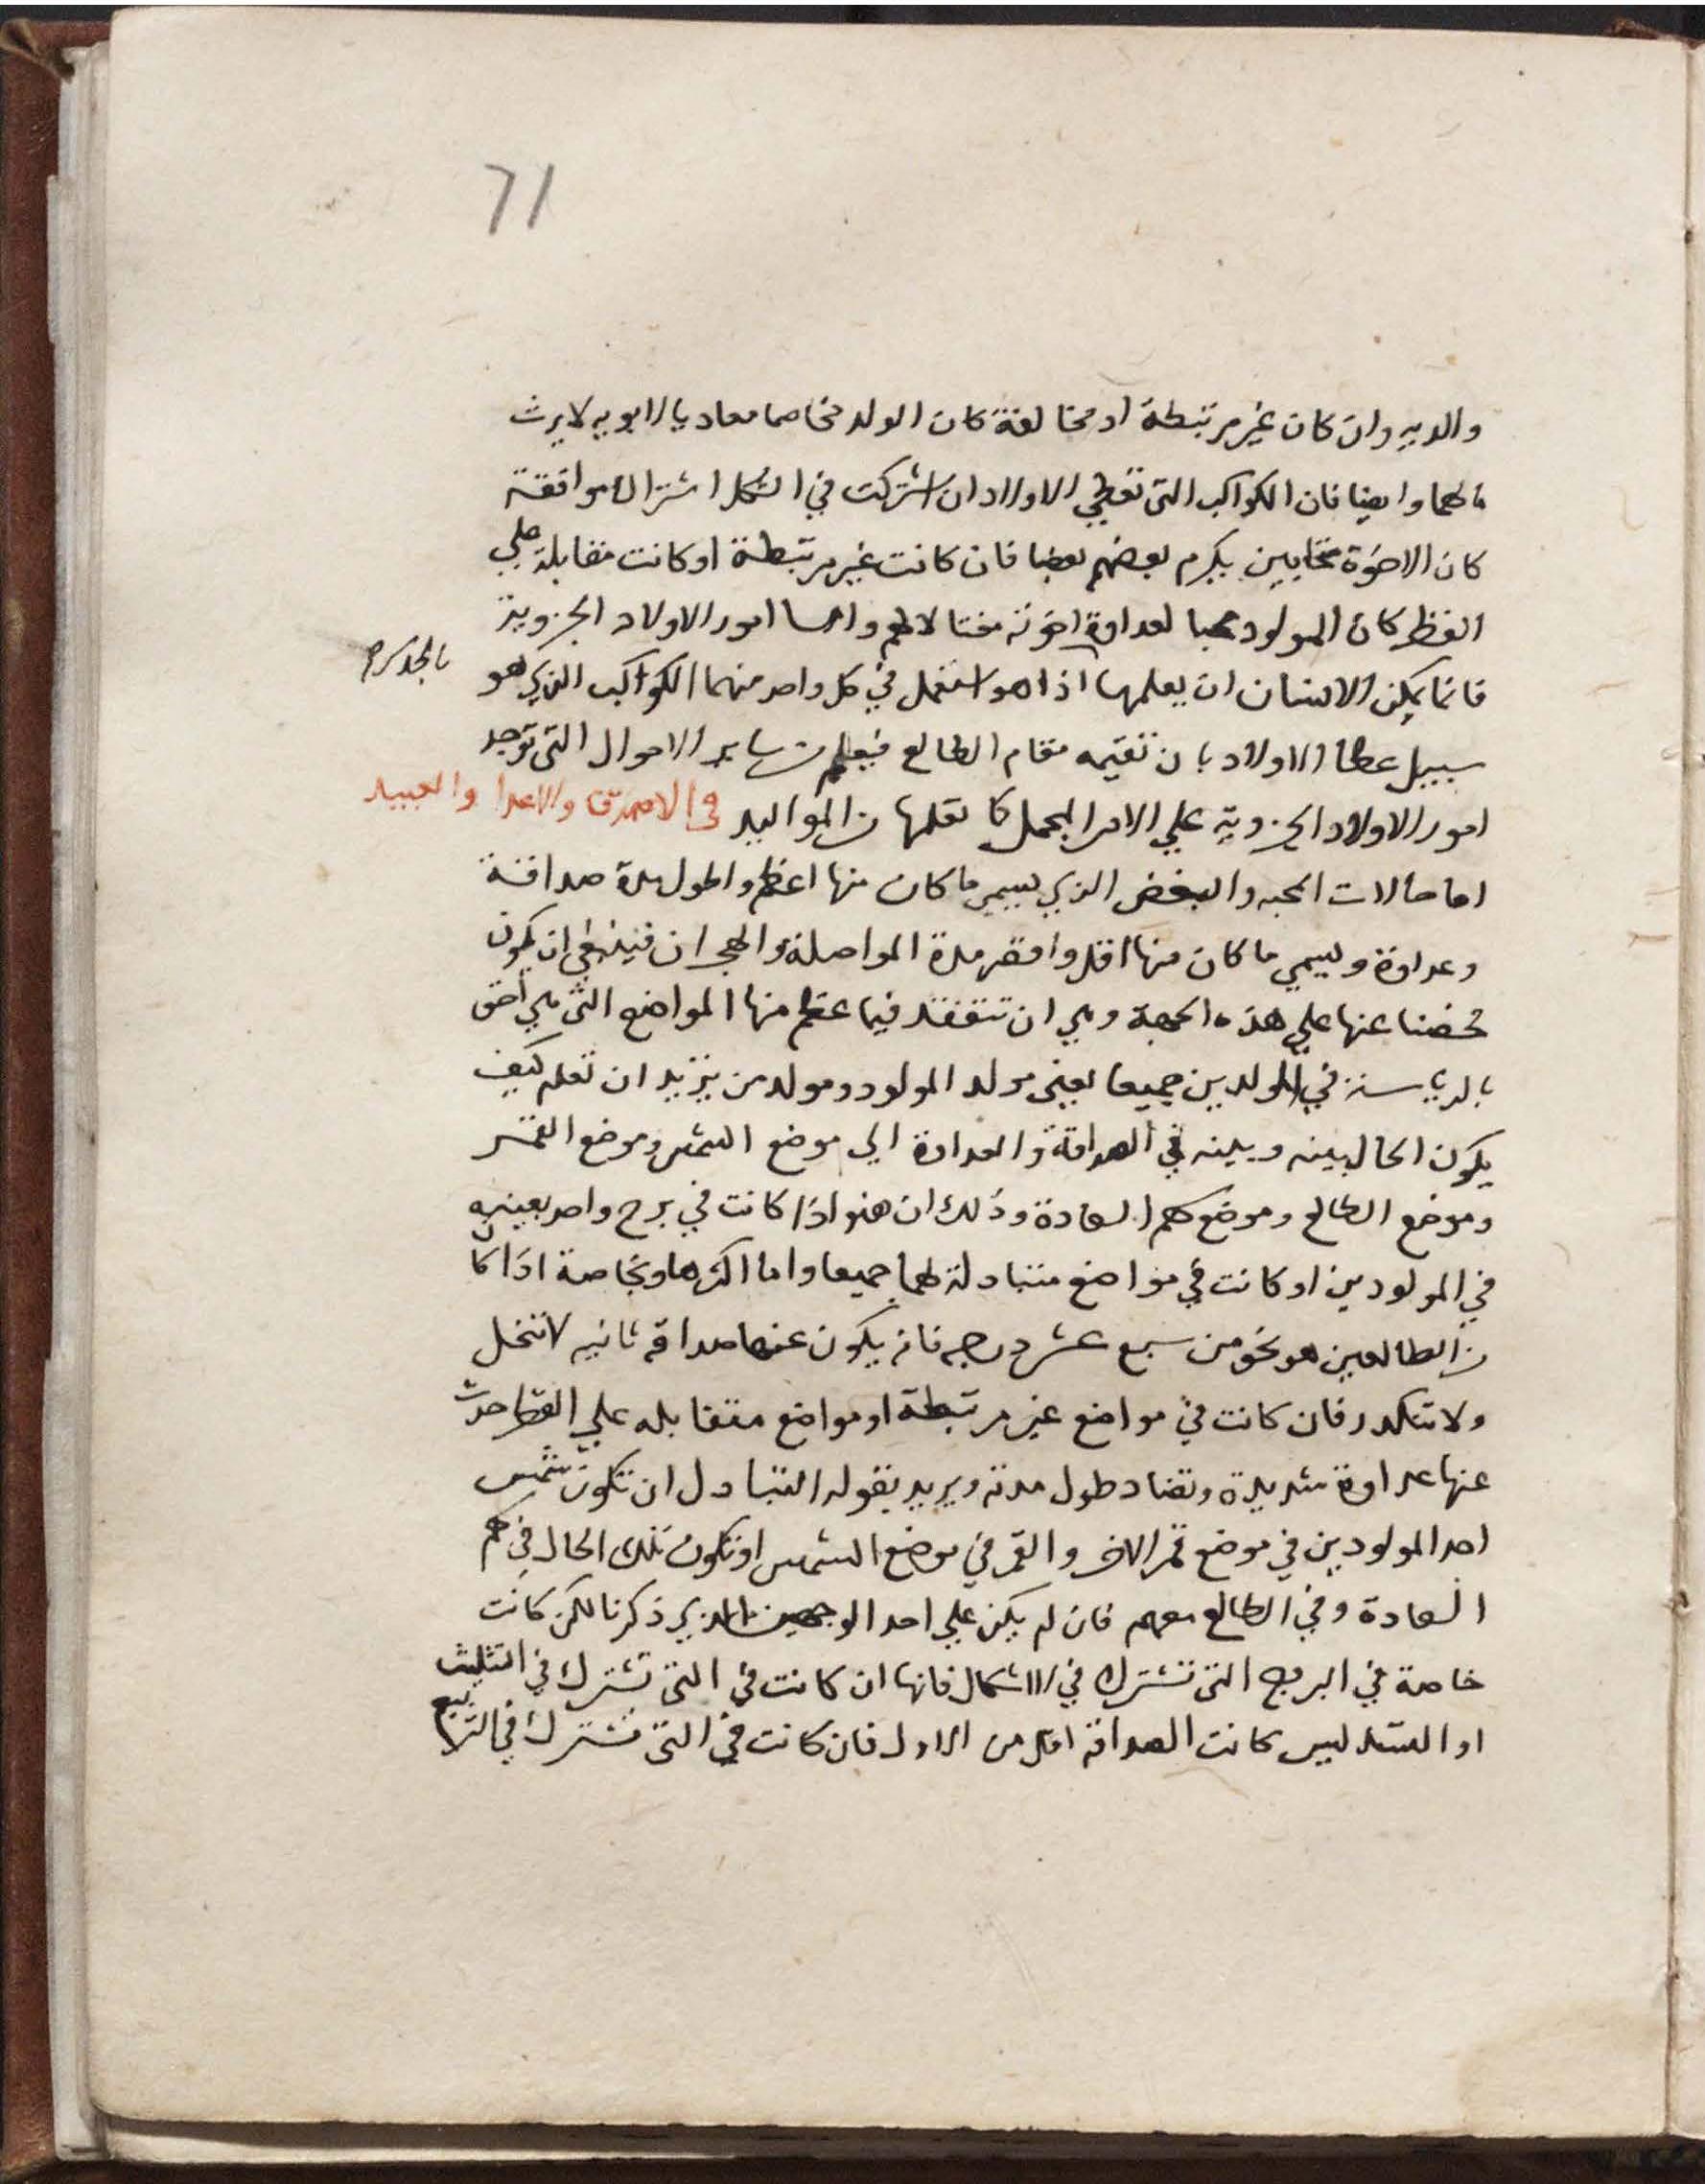 71
والديه وان كان غير مرتبطة او مخالفة كان الولد مخاصما معاديا لابويه لا يرث
مالهما وايضا فان الكواكب التي تعطي الاولاد ان اشتركت في الشكل اشتراك موافقة
كان الاخوة متحابين يكرم بعضهم بعضا فان كانت غير مرتبطة او كانت مقابلة علي
القطر كان المولود محبا لعداوة اخوته مغتالا لهم واما امور الاولاد الجزوية
فانما يمكن الانسان ان يعلمها اذا هو استعمل في كل واحد منهما الكواكب الذي هو
سبيل عطا الاولاد بان تقيمه مقام الطالع فيعلم سائر الاحوال التي توجد
امور الاولاد الجزوية علي الامر المجمل كما تعلمها المواليد في الاصدقا والاعدا والعبيد
اما حالات المحبه والبغض الذي يسمي ما كان منها اعظم واطول مدة صداقة
وعداوة ويسمي ما كان منها اقل واقصر مدة المواصلة والهجران فينبغي ان يكون
فحصنا عنها علي هذه الجهة وهي ان تتفقد فيما عظم منها المواضع التي هي احق
بالرياسة في المولدين جميعا يعني مولد المولود ومولد من يريد ان تعلم كيف
يكون الحال بينه وبينه في الصداقة والعداوة الي موضع الشمس وموضع القمر
وموضع الطالع وموضع سهم السعادة وذلك ان هذه اذا كانت في برج واحد بعينه
في المولودين او كانت في مواضع متبادلة لهما جميعا واما اكثرها وبخاصة اذا كان
الطالعين هو نحو من سبع عشر درجه فانه يكون عنها صداقه ثانيه لا تنحل
ولا تتكدر فان كانت في مواضع غير مرتبطة او مواضع متقابله علي القطر حدث
عنها عداوة شديدة وتضاد طول مدته ويريد بقوله التبادل ان تكون شمس
احد المولودين في موضع قمر الاخر والقمر في موضع الشمس او تكون تلك الحال في سهم
السعادة وفي الطالع معهم فان لم يكن علي احد الوجهين الذي ذكرنا لكن كانت
خاصة في البروج التي تشترك في الاشكال فانها ان كانت في التي تشترك في التثليث
او التسديس كانت الصداقة اقل من الاول فان كانت في التي تشترك في التربيع